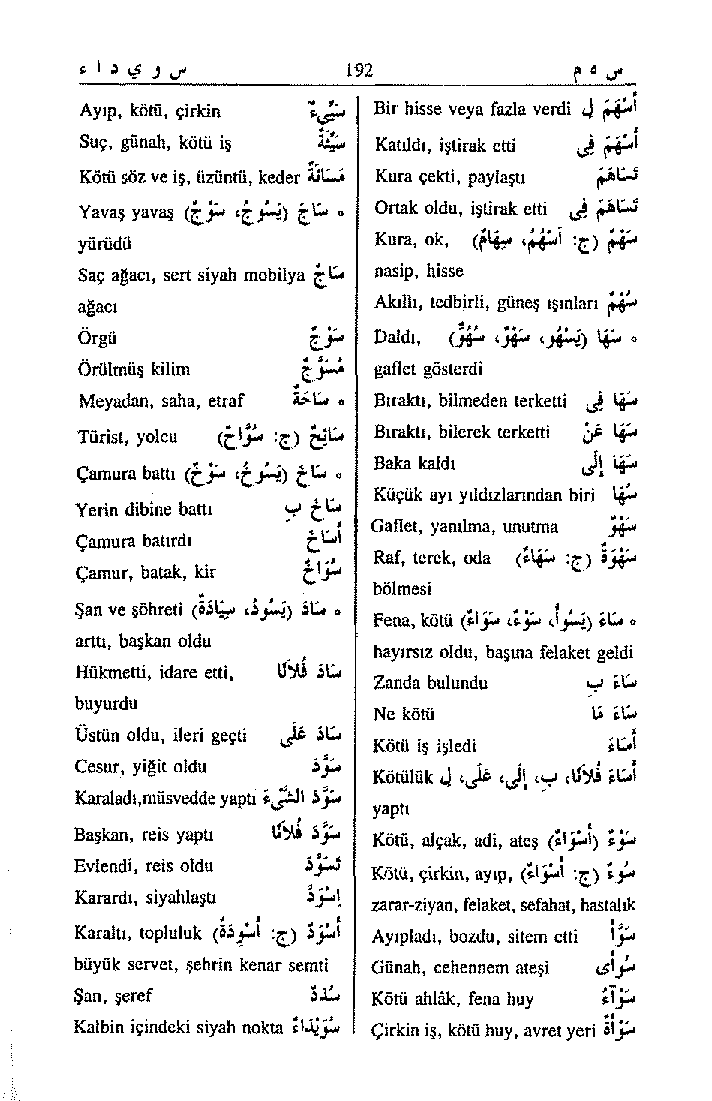 س ه م 192 س و ي د ا ء
أَسْهَمَ لِ Bir hisse veya fazla verdi
أَسْهَمَ فِى Katıldı, iştirak etti
تَسَاهَمَ Kura çekti, paylaştı
تَسَاهَمَ فِى Ortak oldu, iştirak etti
سَهْمٌ (ج: أَسْهُمٌ، سِهَامٌ) Kura, ok,
nasip, hisse
سُهُمٌ Akıllı, tedbirli, güneş ışınları
o سَهَا (يَسْهُو، سَهْوٌ، سُهُوٌّ) Daldı,
gaflet gösterdi
سَهَا فِى Bıraktı, bilmeden terketti
سَهَا عَنْ Bıraktı, bilerek terketti
سَهَا إِلَى Baka kaldı
سُهَا Küçük ayı yıldızlarından biri
سَهْوٌ Gaflet, yanılma, unutma
سَهْوَةٌ (ج: سِهَاءٌ) Raf, terek, oda
bölmesi
o سَاءَ (يَسُوأُ، سَوْءٌ، سَوَاءٌ) Fena, kötü
hayırsız oldu, başına felaket geldi
سَاءَ بِ Zanda bulundu
سَاءَ مَا Ne kötü
أَسَاءَ Kötü iş işledi
أَسَاءَ فُلَانًا، بِ، إِلَى، عَلَى، لِ Kötülük
yaptı
سَوْءٌ (أَسْوَاءٌ) Kötü, alçak, adi, ateş
سُوءٌ (ج: أَسْوَاءٌ) Kötü, çirkin, ayıp,
zarar-ziyan, felaket, sefahat, hastalık
سَوَّأَ Ayıpladı, bozdu, sitem etti
سُوأَى Günah, cehennem ateşi
سَوْآءُ Kötü ahlâk, fena huy
سَوْأَةٌ Çirkin iş, kötü huy, avret yeri
سَيِّىءٌ Ayıp, kötü, çirkin
سَيِّئَةٌ Suç, günah, kötü iş
مَسَائَةٌ Kötü söz ve iş, üzüntü, keder
o سَاجَ (يَسُوجُ، سَوْجٌ) Yavaş yavaş
yürüdü
سَاجٌ Saç ağacı, sert siyah mobilya
ağacı
سَوْجٌ Örgü
مُسَوَّجٌ Örülmüş kilim
o سَاحَةٌ Meyadan, saha, etraf
سَائِحٌ (ج: سُوَّاحٌ) Türist, yolcu
o سَاخَ (يَسُوخُ، سَوْخٌ) Çamura battı
سَاخَ بِ Yerin dibine battı
أَسَاخَ Çamura batırdı
سُوَّاخٌ Çamur, batak, kir
o سَادَ (يَسُودُ، سِيَادَةٌ) Şan ve şöhreti
arttı, başkan oldu
سَادَ فُلَانًا Hükmetti, idare etti,
buyurdu
سَادَ عَلَى Üstün oldu, ileri geçti
سَوَّدَ Cesur, yiğit oldu
سَوَّدَ الشَّىْءَ Karaladı,müsvedde yaptı
سَوَّدَ فُلَانًا Başkan, reis yaptı
تَسَوَّدَ Evlendi, reis oldu
إِسْوَدَّ Karardı, siyahlaştı
أَسْوَدُ (ج: أَسْوِدَةٌ) Karaltı, topluluk
büyük servet, şehrin kenar semti
سُدَدٌ Şan, şeref
سُوَيْدَاءُ Kalbin içindeki siyah nokta